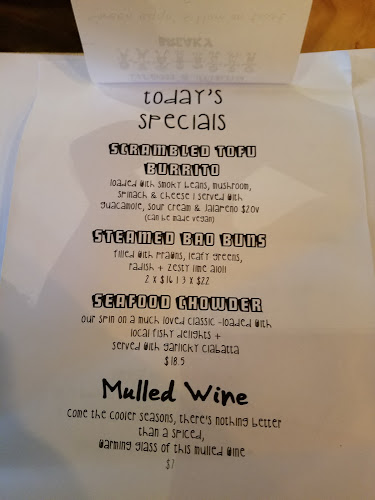 today's
specials
SCRAMBLED TOFU
BURRITO
loaded with smoky beans, mushroom,
spinach & cheese | served with
guacamole, sour cream & jalapeno $20v
(can be made vegan)
STEAMED BAO BUNS
filled with prawns, leafy greens,
radish + zesty lime aioli
2 x $16 | 3 x $22
SEAFOOD CHOWDER
our spin on a much loved classic -loaded with
local fishy delights +
served with garlicky ciabatta
$18.5
Mulled Wine
come the cooler seasons, there's nothing better
than a spiced,
warming glass of this mulled wine
$7